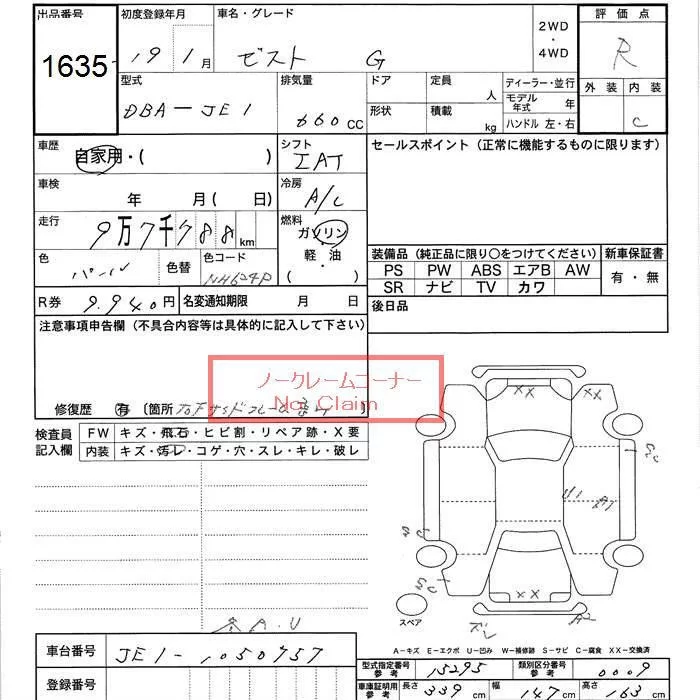 出品番号
1635
初度登録年月
19 1 月
車名・グレード
ゼスト G
2WD
・
4WD
評価点
R
外装 内装
C
型式
DBA-JE1
排気量
660 CC
ドア
形状
定員
人
積載
kg
ディーラー・並行
モデル年式 年
ハンドル 左・右
車歴
自家用・( )
シフト
IAT
セールスポイント (正常に機能するものに限ります)
車検
年 月( 日)
冷房
A/C
走行
9万7千788 km
燃料
ガソリン
軽・油
( )
色
パール
色替
色コード
NH624P
装備品 (純正品に限り○をつけてください)
新車保証書
PS PW ABS エアB AW
SR ナビ TV カワ
有・無
R券 9.940円
名変通知期限 月 日
後日品
注意事項申告欄 (不具合内容等は具体的に記入して下さい)
ノークレームコーナー
Not Claim
修復歴 有 〔箇所
検査員記入欄
FW キズ・飛石・ヒビ割・リペア跡・X要
内装 キズ・汚レ・コゲ・穴・スレ・キレ・破レ
XX XX
U1 A1
XX
スペア
ズレ A2
A.U
A-キズ E-エクボ U-凹み W-補修跡 S-サビ C-腐食 XX-交換済
車台番号
JE1-1050757
登録番号
型式指定番号 参考 15295
類別区分番号 参考 0009
車庫証明用 参考 長さ 339 cm 幅 147 cm 高さ 163 cm